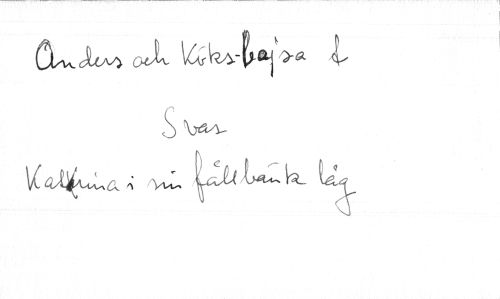 Anders och Köks-bajsa &
Svar
Katrina i sin fållbänk låg